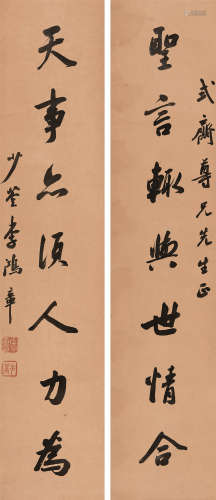 式齋尊兄先生正
聖言輒與世情合
天事亦須人力為
少荃李鴻章